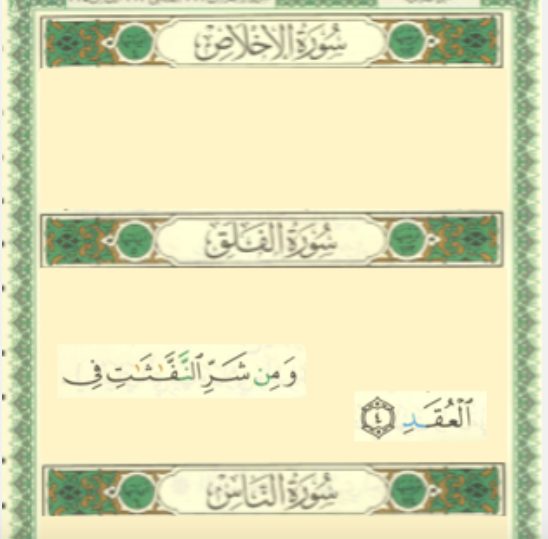 سُورَةُ الإِخْلَاصِ
سُورَةُ الْفَلَقِ
وَمِن شَرِّ ٱلنَّفَّٰثَٰتِ فِى
ٱلْعُقَدِ ٤
سُورَةُ النَّاسِ